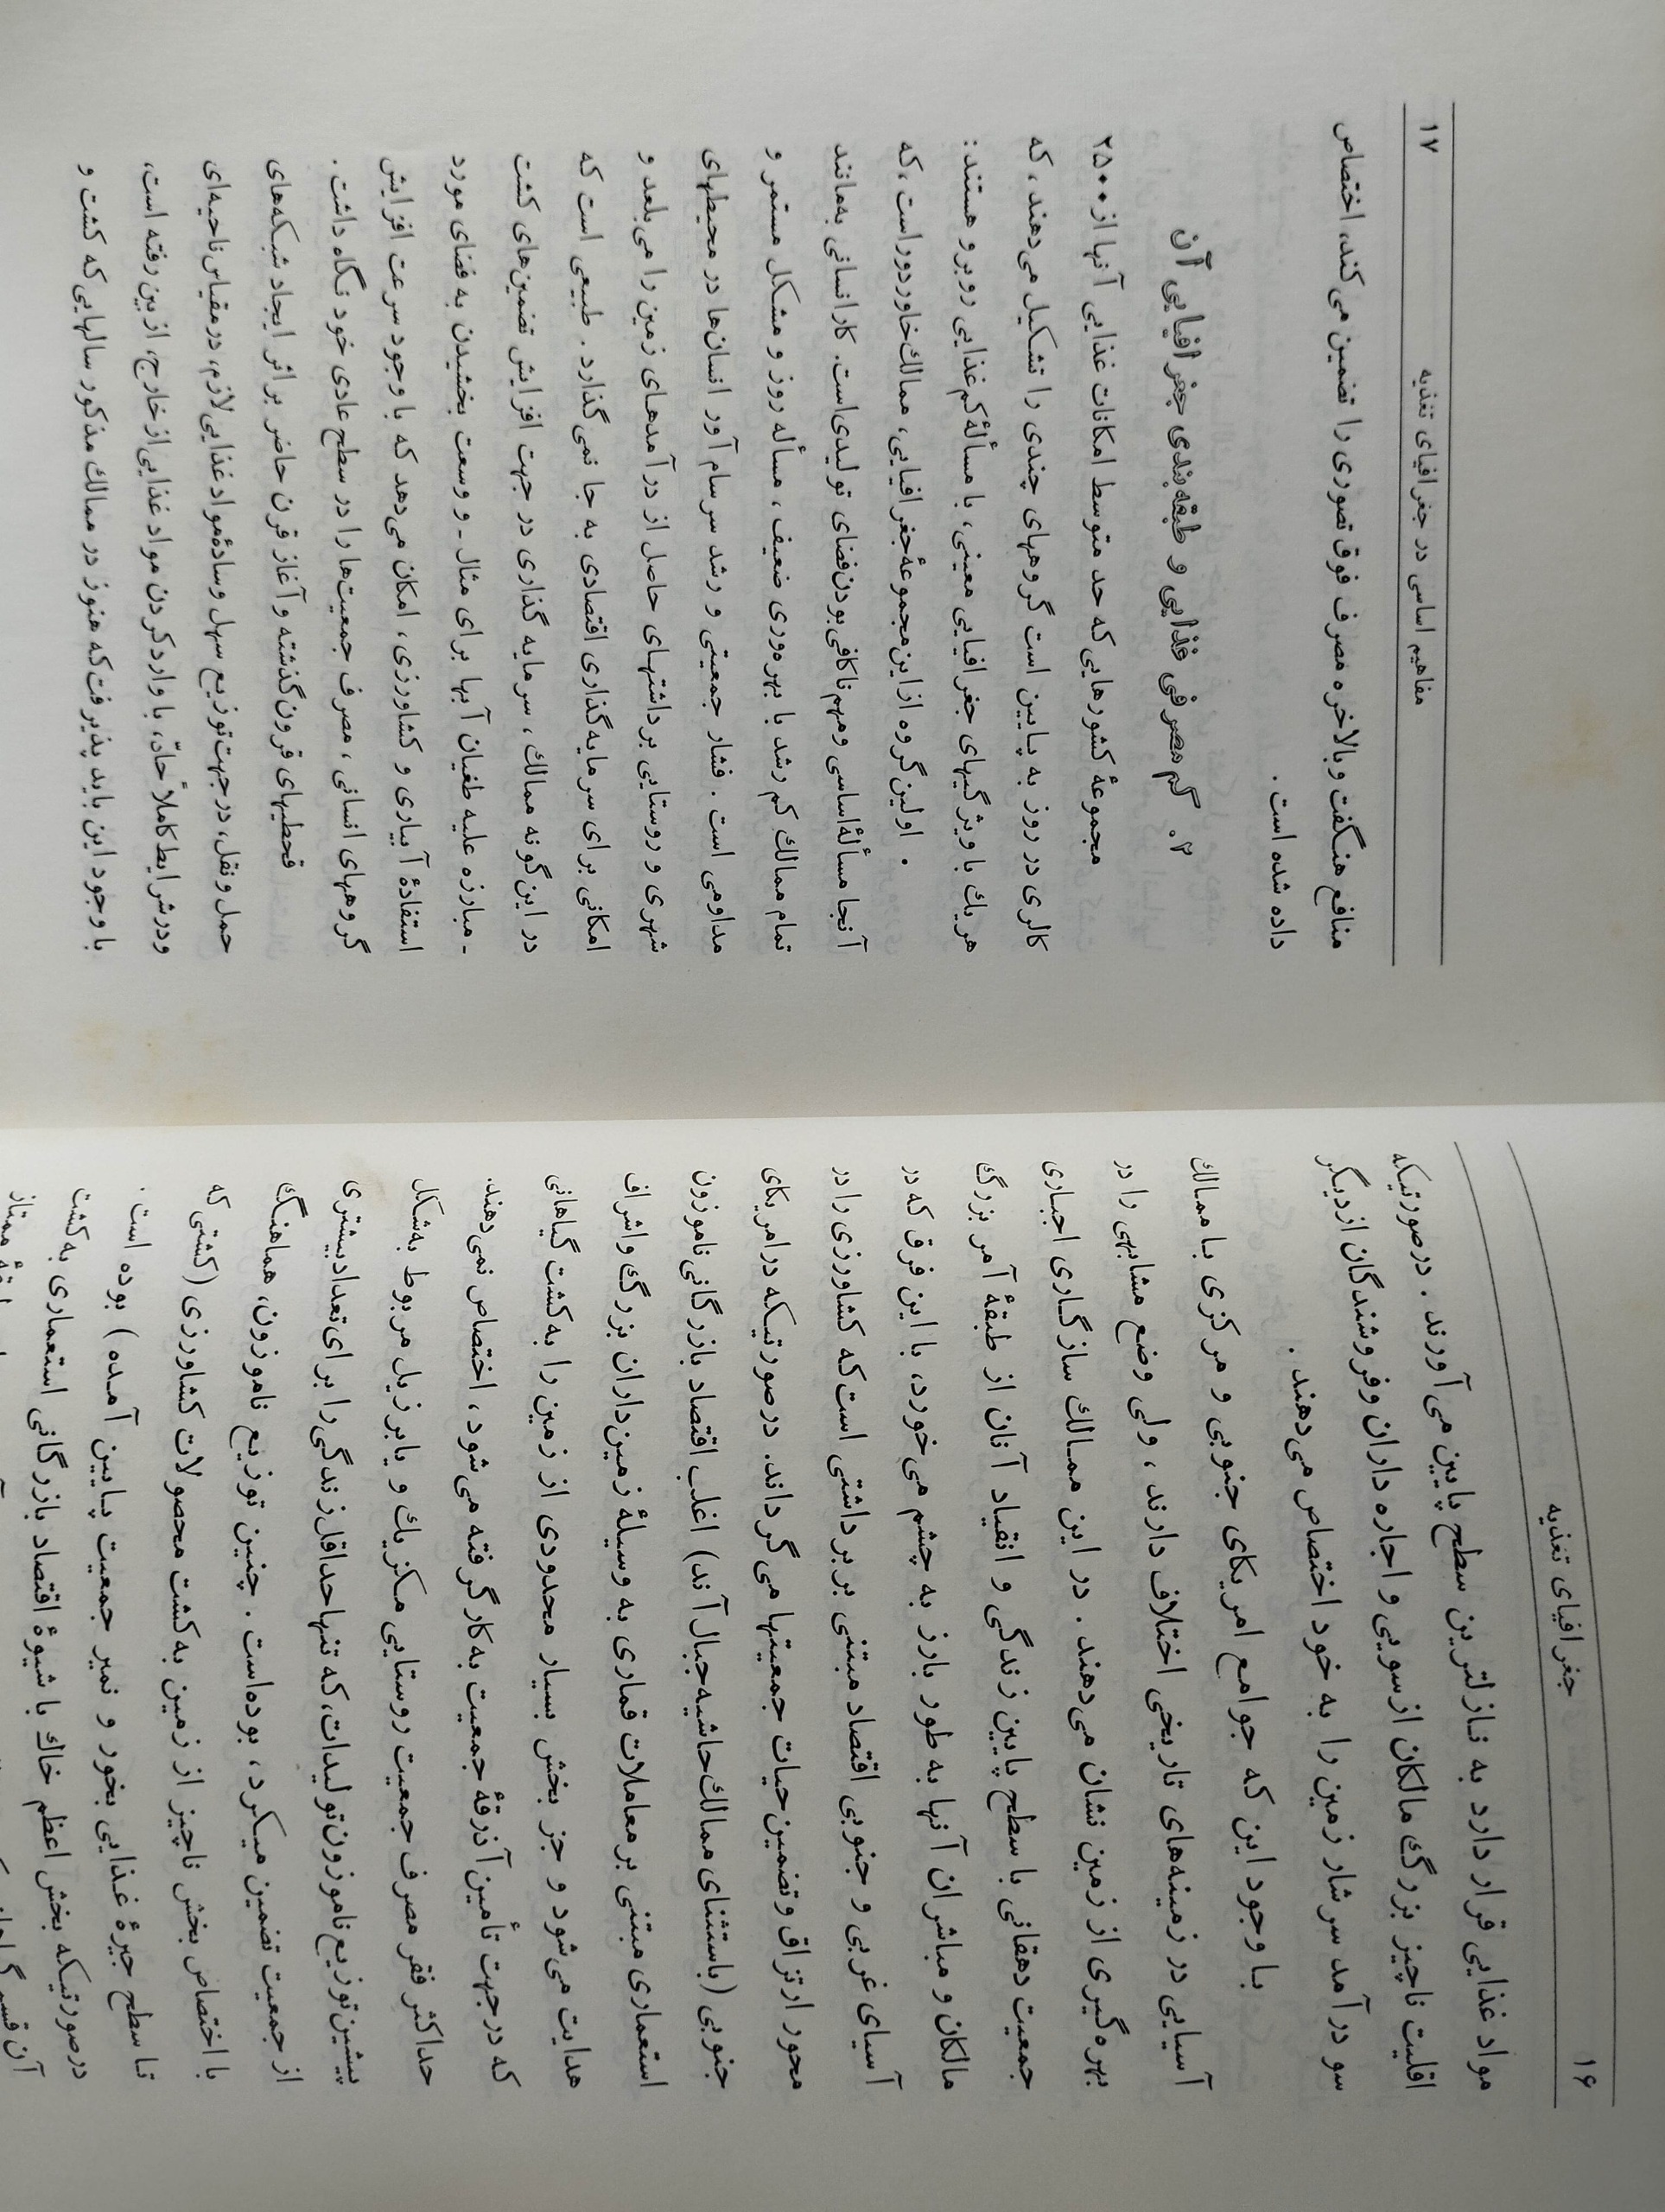 ۱۶
جغرافیای تغذیه
مواد غذایی قرار دارد به نازلترین سطح پایین می‌آورند . درصورتیکه
اقلیت ناچیز بزرگ مالکان ازسویی و اجاره داران وفروشندگان ازدیگر
سو درآمد سرشار زمین را به خود اختصاص می‌دهند .
با وجود این که جوامع امریکای جنوبی و مرکزی با ممالک
آسیایی در زمینه‌های تاریخی اختلاف دارند ، ولی وضع مشابهی را در
بهره‌گیری از زمین نشان می‌دهند . در این ممالك سازگاری اجباری
جمعیت دهقانی با سطح پایین زندگی و انقیاد آنان از طبقهٔ آمر بزرگ
مالکان و مباشران آنها به طور بارز به چشم می‌خورد، با این فرق که در
آسیای غربی و جنوبی اقتصاد مبتنی بر برداشتی است که کشاورزی را در
محور ارتزاق و تضمین حیات جمعیتها می‌گرداند. درصورتیکه درامریکای
جنوبی (باستثنای ممالك حاشیه جبال آند) اغلب اقتصاد بازرگانی ناموزون
استعماری مبتنی بر معاملات قماری به وسیلهٔ زمین‌داران بزرگ واشراف
هدایت می‌شود و جز بخش بسیار محدودی از زمین را به کشت گیاهانی
که درجهت تأمین آذرقهٔ جمعیت به‌کار گرفته می‌شود ، اختصاص نمی‌دهند.
حداکثر فقر مصرف جمعیت روستایی مکزیك و یا برزیل مربوط به‌شکل
پیشین توزیع ناموزون تولیدات، که تنها حداقل زندگی را برای تعداد بیشتری
از جمعیت تضمین میکرد ، بوده‌است . چنین توزیع ناموزون، هماهنگ
با اختصاص بخش ناچیز از زمین به کشت محصولات کشاورزی (کشتی که
تا سطح جیرهٔ غذایی بخور و نمیر جمعیت پایین آمده ) بوده است .
درصورتیکه بخش اعظم خاك با شیوهٔ اقتصاد بازرگانی استعماری به کشت
۱۷
مفاهیم اساسی در جغرافیای تغذیه
منافع هنگفت وبالاخره مصرف فوق تصوری را تضمین می‌کند، اختصاص
داده شده است .
۲. کم مصرفی غذایی و طبقه‌بندی جغرافیایی آن
مجموعهٔ کشورهایی که حد متوسط امکانات غذایی آنها از ۲۵۰۰
کالری در روز به پایین است گروههای چندی را تشکیل می‌دهند ، که
هریك باویژگیهای جغرافیایی معینی، با مسألهٔ کم‌غذایی روبرو هستند :
• اولین گروه ازاین مجموعهٔ جغرافیایی، ممالك خاور دور است ، که
آنجا مسألهٔ اساسی ومهم ناکافی بودن فضای تولیدی‌است. کارانسانی به‌مانند
تمام ممالك کم رشد با بهره‌وری ضعیف ، مسأله روز و مشکل مستمر و
مداومی است . فشار جمعیتی و رشد سرسام آور انسان‌ها در محیطهای
شهری و روستایی برداشتهای حاصل از درآمدهای زمین را می‌بلعد و
امکانی برای سرمایه‌گذاری اقتصادی به جا نمی‌گذارد . طبیعی است که
در این‌گونه ممالك ، سرمایه گذاری در جهت افزایش تضمین‌های کشت
ـ مبارزه علیه طغیان آبها برای مثال ـ و وسعت بخشیدن به فضای مورد
استفادهٔ آبیاری و کشاورزی ، امکان می‌دهد که با وجود سرعت افزایش
گروههای انسانی ، مصرف جمعیت‌ها را در سطح عادی خود نگاه داشت .
قحطیهای قرون‌گذشته و آغاز قرن حاضر براثر ایجاد شبکه‌های
حمل ونقل، درجهت توزیع سهل وسادهٔ مواد غذایی لازم، درمقیاس ناحیه‌ای
ودرشرایط کاملاً حادّ، با واردکردن مواد غذایی ازخارج، ازبین رفته است،
با وجود این باید پذیرفت که هنوز در ممالك مذکور سالهایی که کشت و